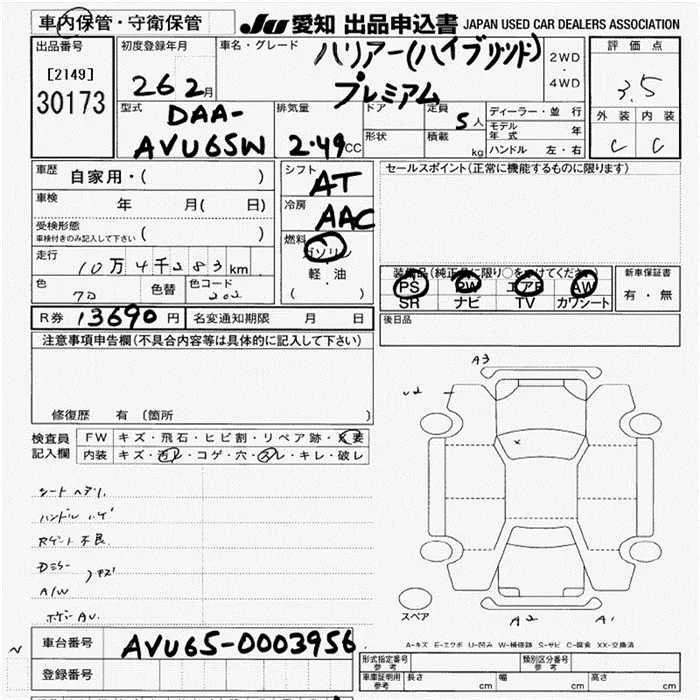 車内保管・守衛保管
JU 愛知 出品申込書 JAPAN USED CAR DEALERS ASSOCIATION
出品番号
[2149]
30173
初度登録年月
26 2月
車名・グレード
ハリアー(ハイブリッド)
プレミアム
2WD
・
4WD
評価点
3.5
外装 内装
C C
型式
DAA-
AVU65W
排気量
2.49CC
ドア
形状
定員
5人
積載
kg
ディーラー・並行
モデル年式 年
ハンドル 左・右
車歴
自家用・( )
車検
年 月( 日)
受検形態
車検付きのみ記入して下さい ( )
走行
10万4千283km
色
黒
色替
色コード
202
シフト
AT
冷房
AAC
燃料
ガソリン
軽・油
( )
セールスポイント(正常に機能するものに限ります)
装備品(純正品に限り○をつけてください)
PS PW エアB AW
SR ナビ TV カワシート
新車保証書
有・無
R券 13690円
名変通知期限 月 日
後日品
注意事項申告欄(不具合内容等は具体的に記入して下さい)
修復歴 有 〔箇所 〕
検査員
記入欄
FW キズ・飛石・ヒビ割・リペア跡・X要
内装 キズ・汚レ・コゲ・穴・スレ・キレ・破レ
シートヘタリ
ハンドル
Rゲート不良
A/W
A3
U2
スペア
A2
A1
A-キズ E-エクボ U-凹み W-補修跡 S-サビ C-腐食 XX-交換済
車台番号
AVU65-0003956
登録番号
形式指定番号
参考
類別区分番号
参考
車庫証明用
参考
長さ cm
幅 cm
高さ cm